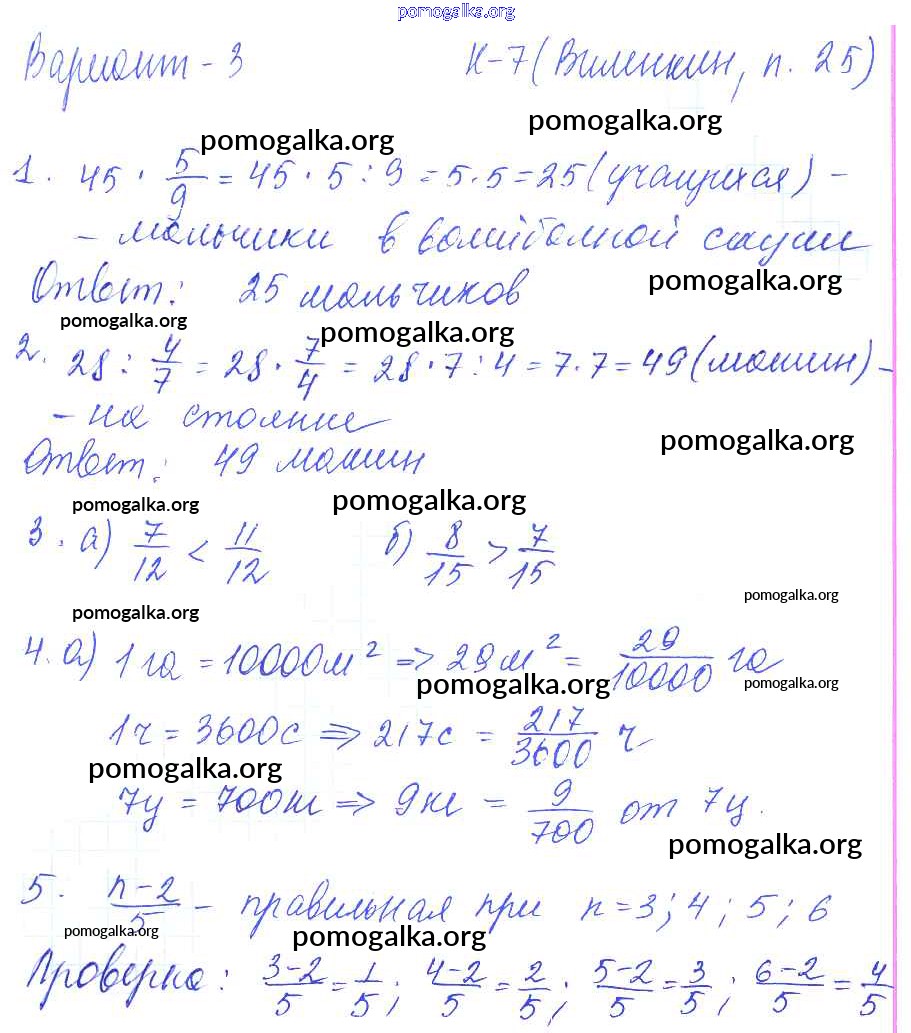 pomogalka.org
Вариант - 3 К-7 (Виленкин, п. 25)
pomogalka.org
pomogalka.org
1. 45 · 5/9 = 45 · 5 : 9 = 5 · 5 = 25 (учащихся) -
- мальчики в волейбольной секции
pomogalka.org
Ответ: 25 мальчиков
pomogalka.org
pomogalka.org
2. 28 : 4/7 = 28 · 7/4 = 28 · 7 : 4 = 7 · 7 = 49 (машин) -
- на стоянке
pomogalka.org
Ответ: 49 машин
pomogalka.org
pomogalka.org
3. а) 7/12 < 11/12 б) 8/15 > 7/15
pomogalka.org
pomogalka.org
4. а) 1 га = 10000 м² => 29 м² = 29/10000 га
pomogalka.org
pomogalka.org
1 ч = 3600 с => 217 с = 217/3600 ч
pomogalka.org
7 ц = 700 кг => 9 кг = 9/700 от 7 ц.
pomogalka.org
5. n-2/5 - правильная при n = 3; 4; 5; 6
pomogalka.org
pomogalka.org
Проверка: 3-2/5 = 1/5; 4-2/5 = 2/5; 5-2/5 = 3/5; 6-2/5 = 4/5